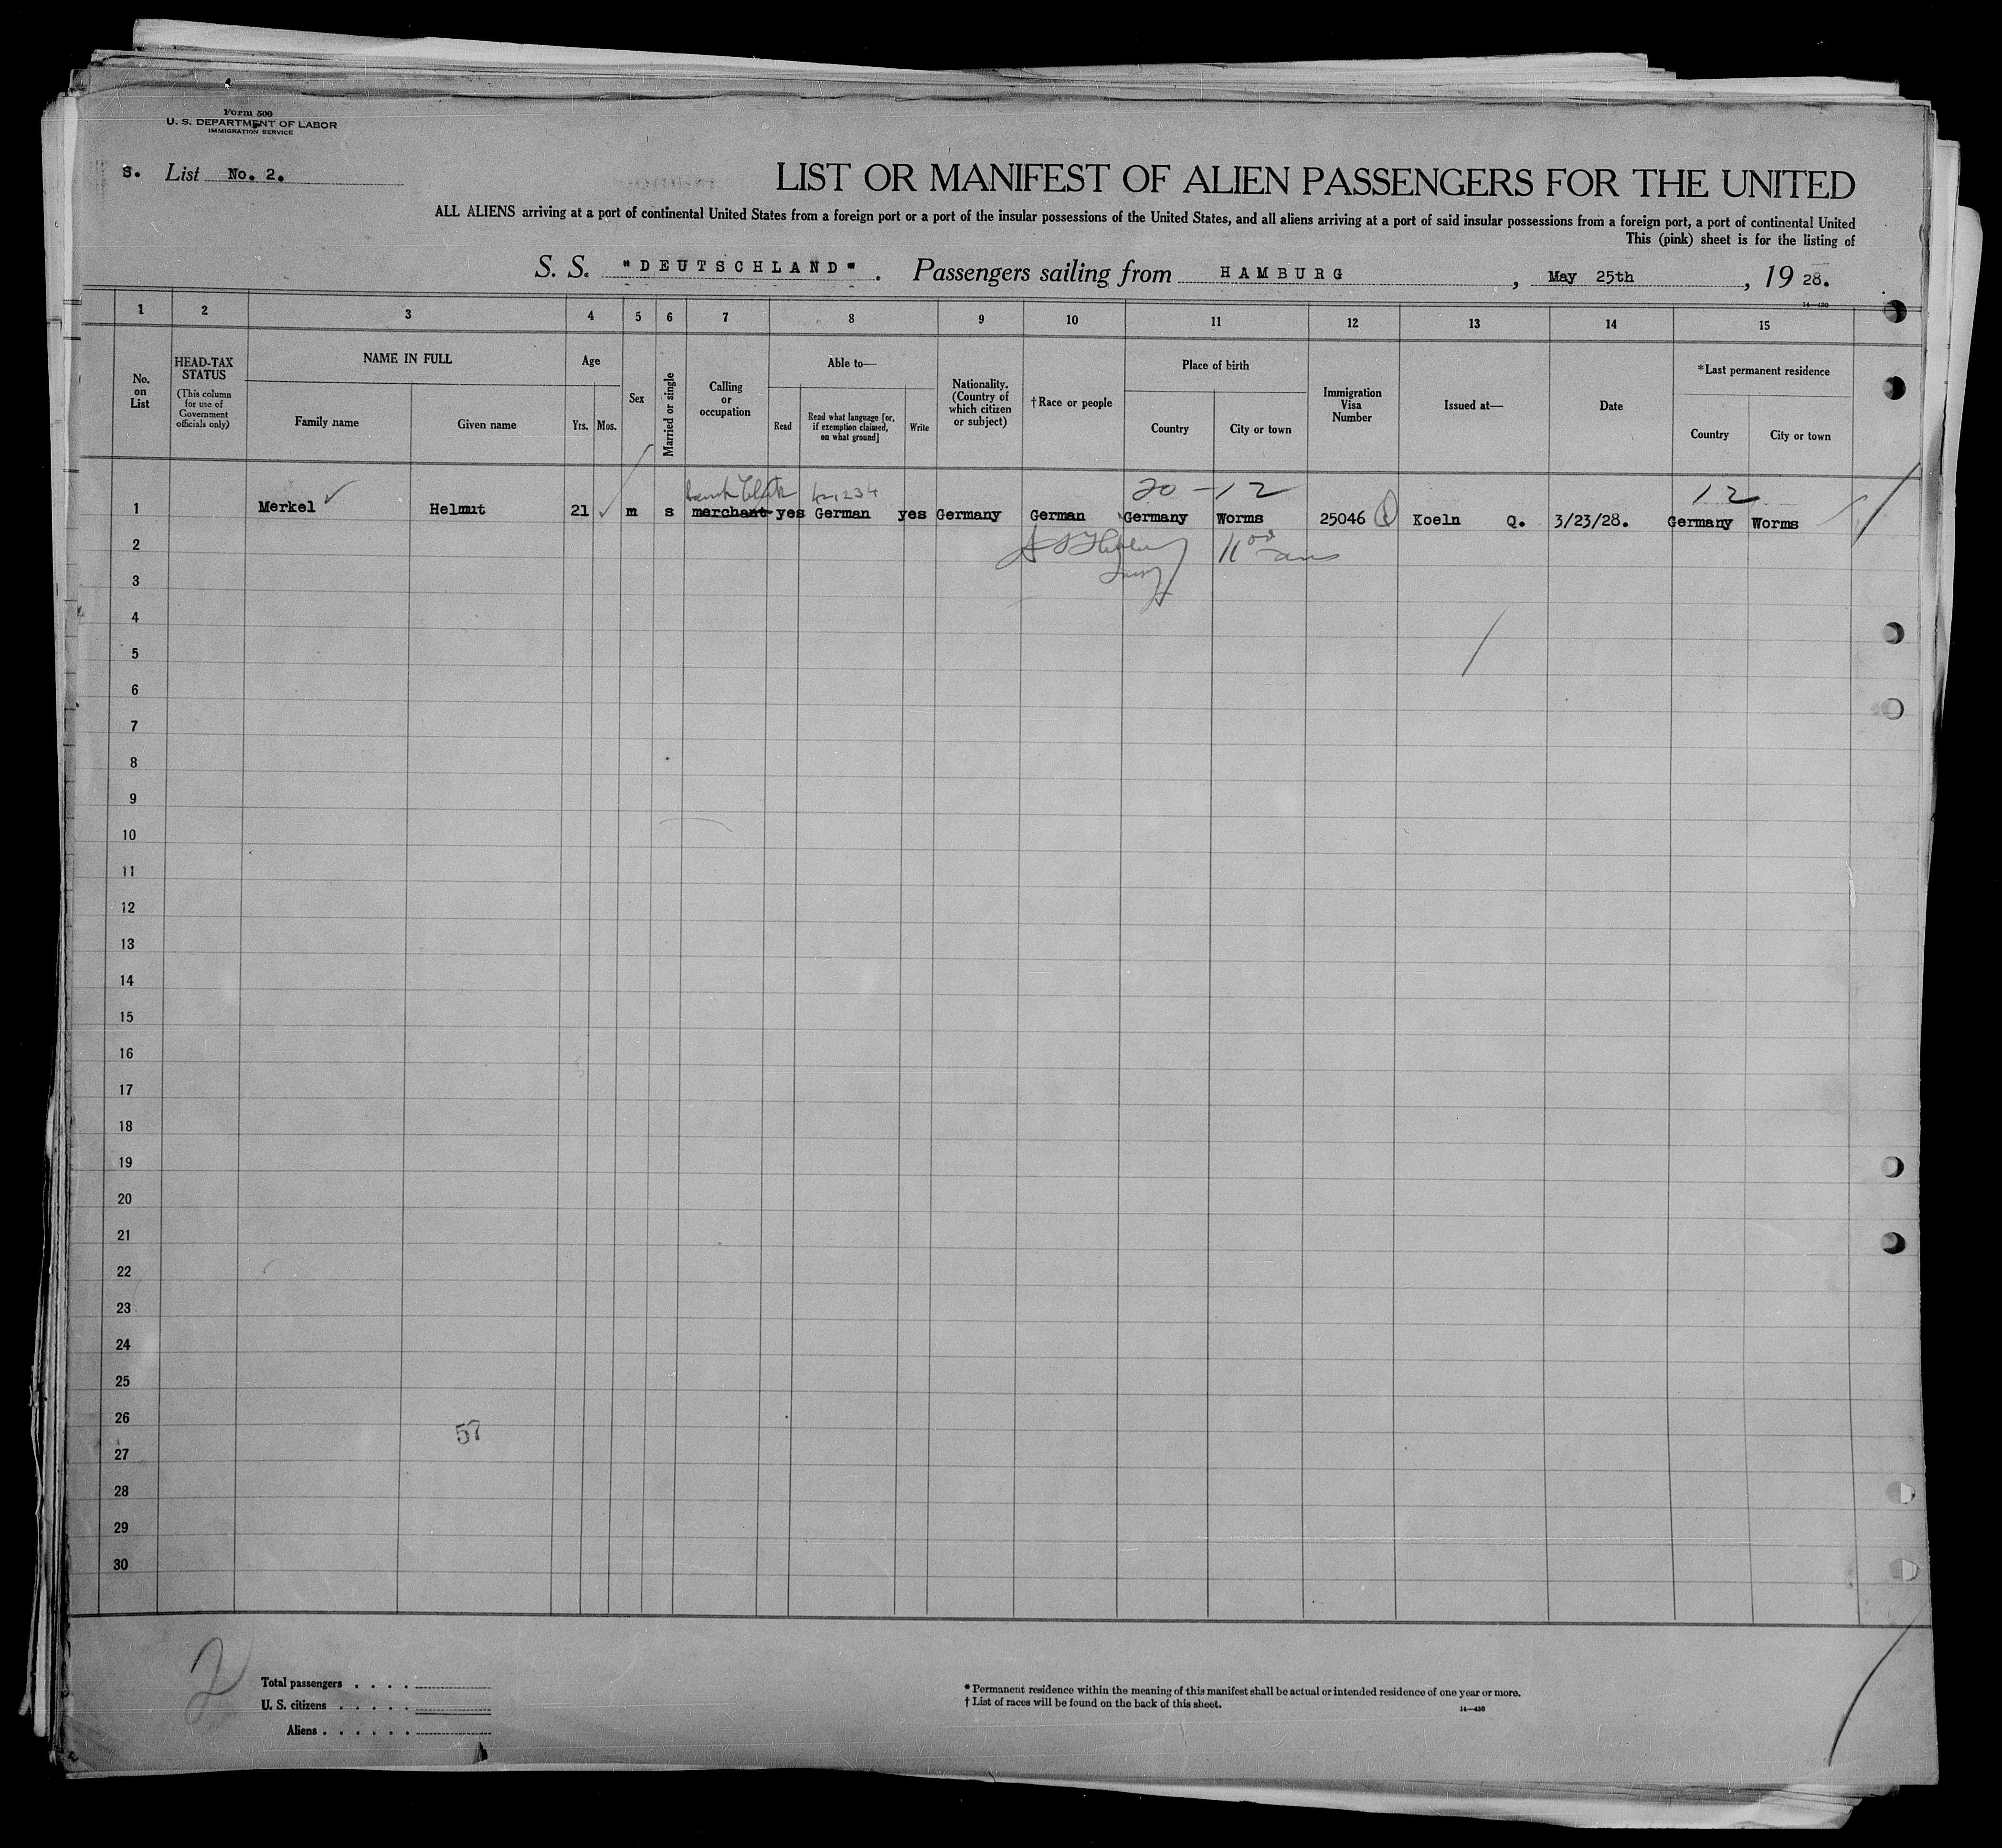 Form 500
U. S. DEPARTMENT OF LABOR
IMMIGRATION SERVICE
S. List No. 2.
LIST OR MANIFEST OF ALIEN PASSENGERS FOR THE UNITED
ALL ALIENS arriving at a port of continental United States from a foreign port or a port of the insular possessions of the United States, and all aliens arriving at a port of said insular possessions from a foreign port, a port of continental United
This (pink) sheet is for the listing of
S. S. "DEUTSCHLAND". Passengers sailing from HAMBURG, May 25th, 1928.
14—430
1 2 3 4 5 6 7 8 9 10 11 12 13 14 15
No. on List
HEAD-TAX STATUS
(This column for use of Government officials only)
NAME IN FULL
Family name
Given name
Age
Yrs.
Mos.
Sex
Married or single
Calling or occupation
Able to—
Read
Read what language [or, if exemption claimed, on what ground]
Write
Nationality. (Country of which citizen or subject)
†Race or people
Place of birth
Country
City or town
Immigration Visa Number
Issued at—
Date
*Last permanent residence
Country
City or town
bank Clerk 20 - 12 12
1 Merkel ✓ Helmut 21 ✓ m s merchant yes German yes Germany German Germany Worms 25046 Koeln Q. 3/23/28. Germany Worms
2
3
4
5
6
7
8
9
10
11
12
13
14
15
16
17
18
19
20
21
22
23
24
25
26
57
27
28
29
30
2
Total passengers . . . .
U. S. citizens . . . . .
Aliens . . . . . .
* Permanent residence within the meaning of this manifest shall be actual or intended residence of one year or more.
† List of races will be found on the back of this sheet.
14—430